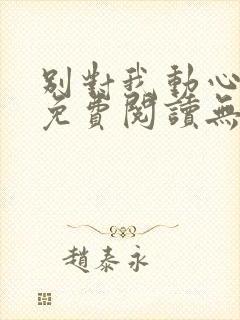 別對我動心
免費閱讀無
趙泰永